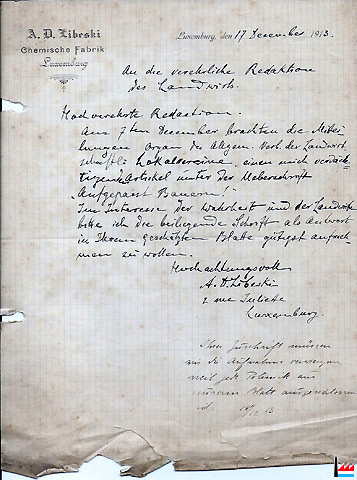 A. D. Libeski
Chemische Fabrik
Luxemburg
Luxemburg, den 17 December 1913.
An die verehrliche Redaktion
des Landwirts.
Hochverehrte Redaktion.
Am 7ten December brachten die Mittei-
lungen Organ des Allgem. Verb. der Landwirt-
schaftl. Lokalvereine, einen mich verdäch-
tigenden Artikel unter der Ueberschrift
Aufgepasst Bauern!
Im Interesse der Wahrheit und der Landwirte
bitte ich die beiliegende Schrift als Antwort
in Ihrem geschätzten Blatte gütigst aufneh-
men zu wollen.
Hochachtungsvoll
A. D. Libeski
2 rue Juliette
Luxemburg.
Ihrer Zuschrift müssen
wir die Aufnahme verweigern
weil jede Polemik aus
unserm Blatt ausgeschlossen